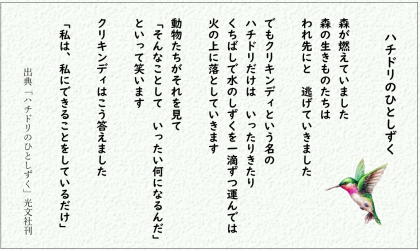 ハチドリのひとしずく
森が燃えていました
森の生きものたちは
われ先にと　逃げていきました
でもクリキンディという名の
ハチドリだけは　いったりきたり
くちばしで水のしずくを一滴ずつ運んでは
火の上に落としていきます
動物たちがそれを見て
「そんなことして　いったい何になるんだ」
といって笑います
クリキンディはこう答えました
「私は、私にできることをしているだけ」
出典「ハチドリのひとしずく」光文社刊